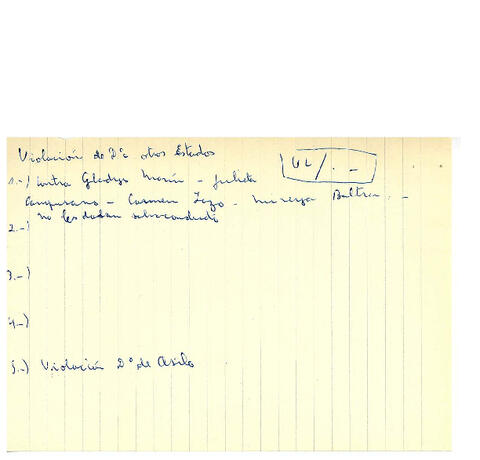 Violación de Dº otros Estados
UL/. -
1.-) Contra Gladys Marín - Julieta
Campusano - Carmen Lazo - Mireya Baltra . -
no les daban salvoconducto
2.-)
3.-)
4.-)
5.-) Violación Dº de Asilo